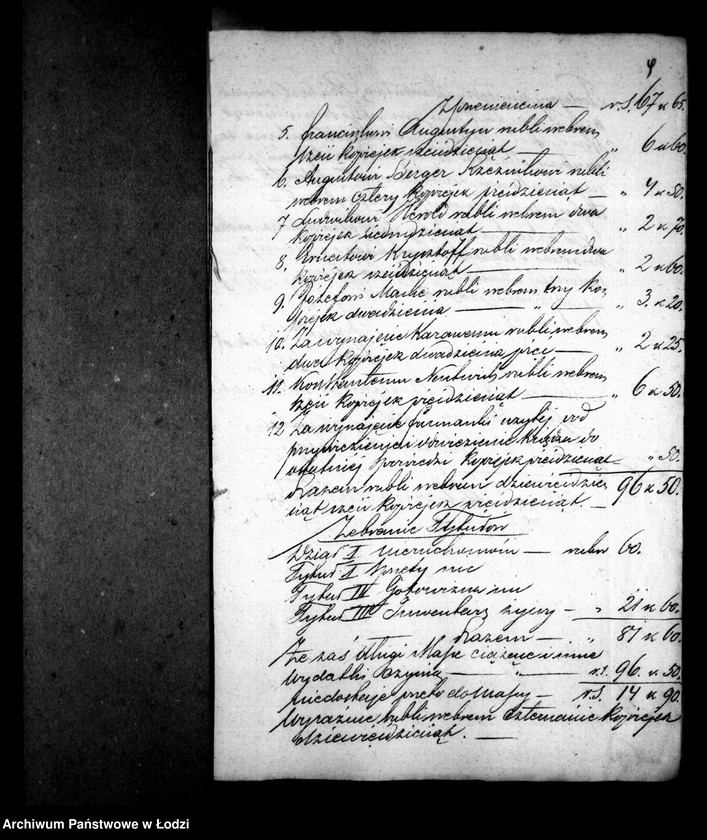 4
Z przeniesienia — r.S. 67 k 65.
5. Franciszkowi Augustyn rubli srebrem
sześć kopiejek sześćdziesiąt — " 6 k 60.
6. Augustowi Berger Rzeźnikowi rubli
srebrem cztery kopiejek pięćdziesiąt — " 4 k 50.
7 Ludwikowi Herold rubli srebrem dwa
kopiejek siedmdziesiąt — " 2 k 70.
8. Ernestowi Krysztoff rubli srebrem dwa
kopiejek sześćdziesiąt — " 2 k 60.
9. Józefowi rubli srebrem trzy ko
piejek dwadzieścia — " — " 3. k 20.
10. Za wynajęcie Karawanu rubli srebrem
dwa kopiejek dwadzieścia pięć — " 2 k 25.
11. Konstantemu rubli srebrem
sześć kopiejek pięćdziesiąt — " 6 k 50.
12 Za wynajęcie furmanki użytej pod
odwiezienie Księdza do
ostatniej spowiedzi kopiejek pięćdziesiąt — " k 50.
Razem rubli srebrem dziewiędzie
siąt sześć kopiejek pięćdziesiąt. — 96 k 50.
Zebranie Tytułów
Dział I nieruchomości — rubsr 60.
Tytuł I Sprzęty nic
Tytuł II Gotowizna nic
Tytuł III Inwentarz żywy — " 21 k 60.
Razem — " 81 k 60.
Że zaś długi Massę ciążące i inne
wydatki czynią — " — r.s. 96. k. 50.
niedostaje przeto do Massy — r.S. 14 k 90.
wyraźnie rubli srebrem czternaście kopiejek
dziewięćdziesiąt. —
Archiwum Państwowe w Łodzi